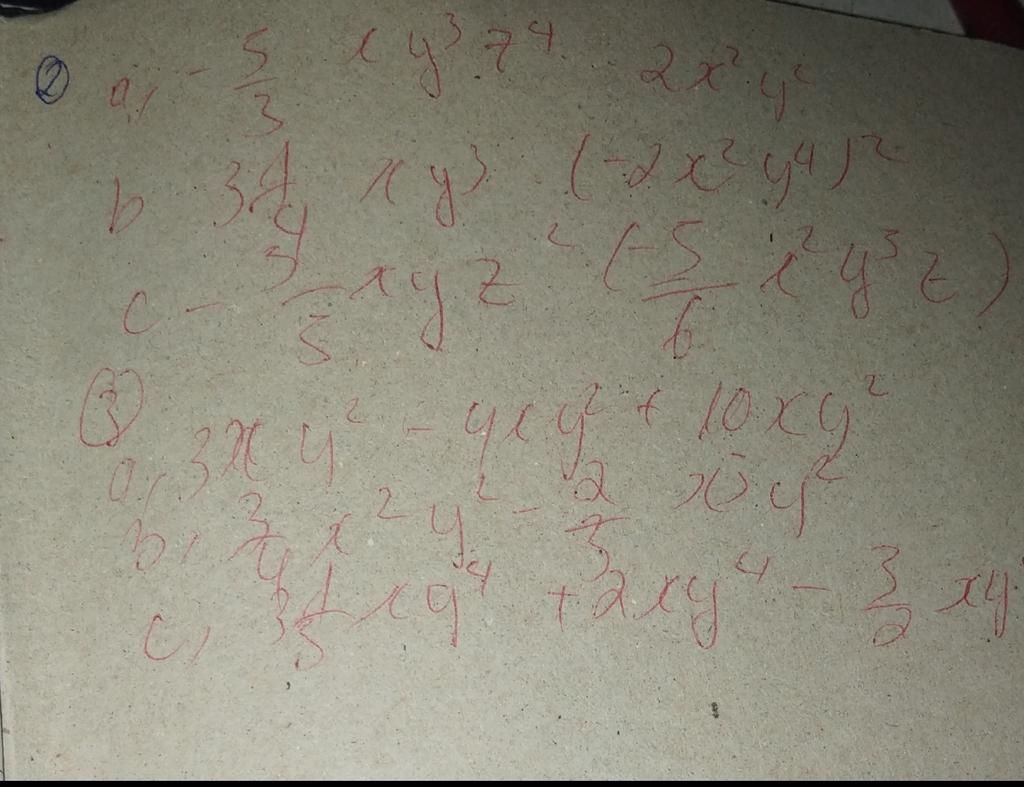 ② a, -5/3 xy³z⁴ 2x²y²
b 3 1/4 xy³ (-2x²y⁴)²
c - 3/5 xyz² (-5/6 x²y³z)
③
a, 3xy² - 4xy² + 10xy²
b, 3/4 x²y² - 2/3 y²
c, 3 1/3 xy⁴ + 2xy⁴ - 3/2 xy